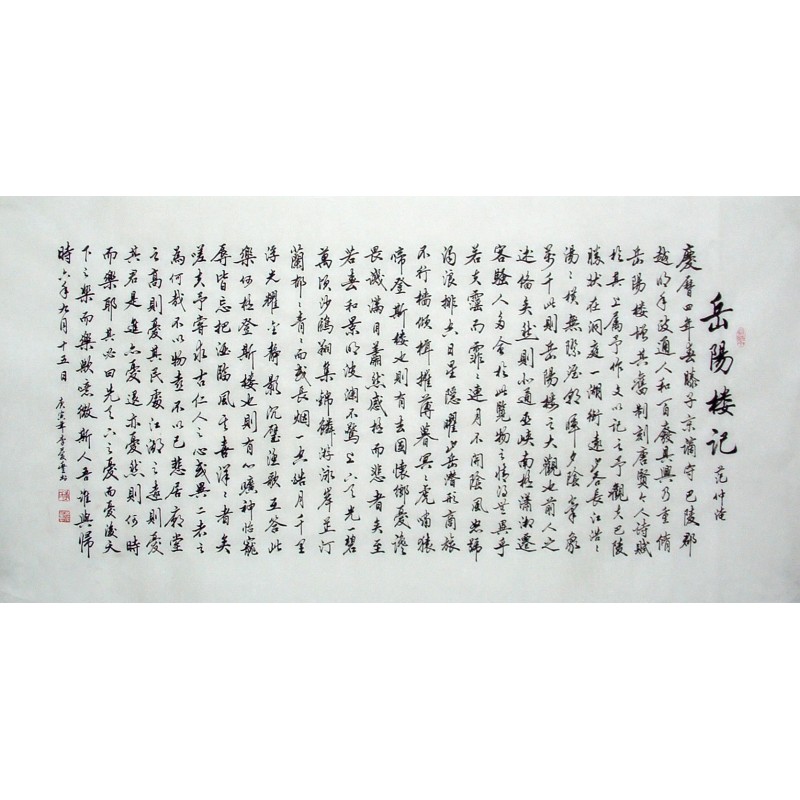 岳陽楼記
范仲淹
慶曆四年春滕子京謫守巴陵郡
越明年政通人和百廢具興乃重脩
岳陽楼增其舊制刻唐賢今人詩賦
於其上属予作文以記之予觀夫巴陵
勝狀在洞庭一湖銜遠山吞長江浩々
湯々橫無際涯朝暉夕陰氣象
萬千此則岳陽楼之大觀也前人之
述備矣然則北通巫峡南極瀟湘遷
客騷人多會於此覽物之情得無異乎
若夫霪雨霏々連月不開陰風怒號
濁浪排空日星隱曜山岳潛形商旅
不行檣傾楫摧薄暮冥々虎嘯猿
啼登斯楼也則有去国懷鄉憂讒
畏譏滿目蕭然感極而悲者矣至
若春和景明波瀾不驚上下天光一碧
萬頃沙鷗翔集錦鱗游泳岸芷汀
蘭郁々青々而或長烟一空皓月千里
浮光耀金靜影沉璧漁歌互答此
樂何極登斯楼也則有心曠神怡寵
辱皆忘把酒臨風其喜洋々者矣
嗟夫予嘗求古仁人之心或異二者之
為何哉不以物喜不以己悲居廟堂
之高則憂其民處江湖之遠則憂
其君是進亦憂退亦憂然則何時
而樂耶其必曰先天下之憂而憂後天
下之樂而樂歟噫微斯人吾誰與歸
時六年九月十五日
庚寅年李